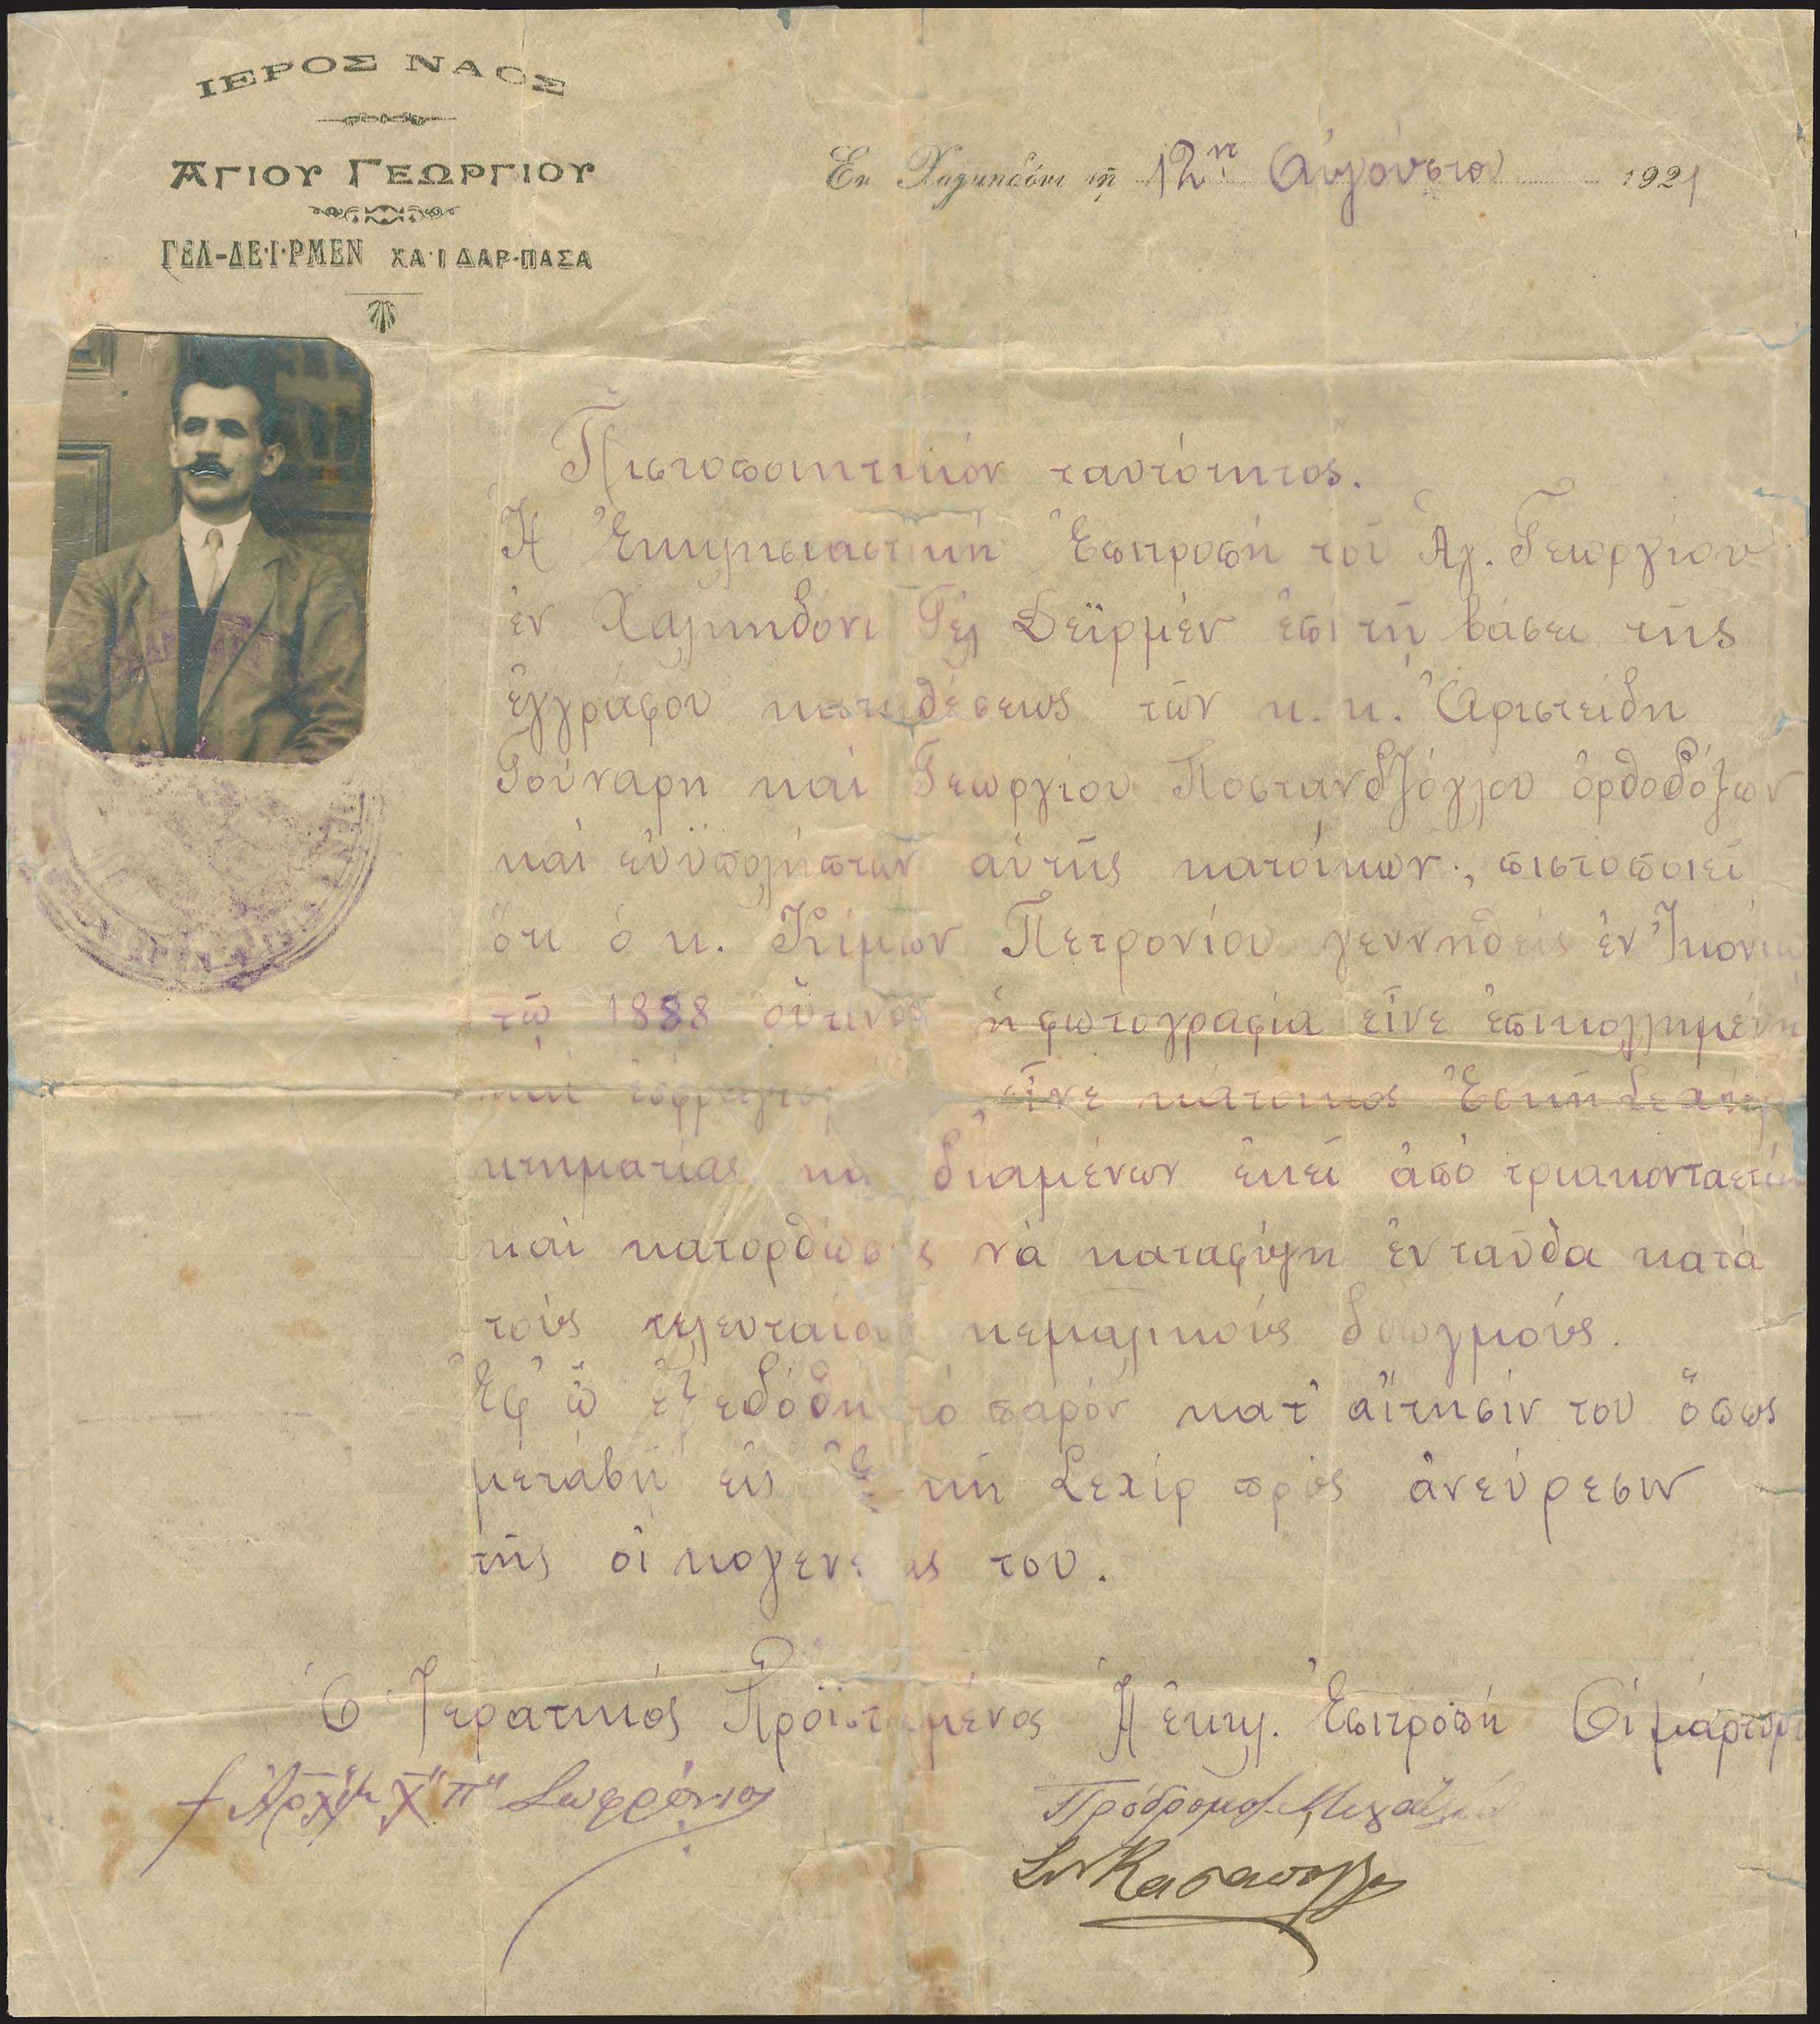 ΙΕΡΟΣ ΝΑΟΣ
ΑΓΙΟΥ ΓΕΩΡΓΙΟΥ
ΓΕΛ-ΔΕ·Ι·ΡΜΕΝ ΧΑ·Ι ΔΑΡ-ΠΑΣΑ
Ἐν Χαλκηδόνι τῇ 12ῃ Αὐγούστου 1921
Πιστοποιητικόν ταυτότητος.
Ἡ Ἐκκλησιαστική Ἐπιτροπή τοῦ Ἁγ. Γεωργίου
ἐν Χαλκηδόνι Γέλ Δεϊρμέν ἐπί τῇ βάσει τῆς
ἐγγράφου καταθέσεως τῶν κ. κ. Ἀριστείδη
Γούναρη καί Γεωργίου Ποστανδζόγλου ὀρθοδόξων
καί εὐϋπολήπτων αὐτῆς κατοίκων, πιστοποιεῖ
ὅτι ὁ κ. Κίμων Πετρονίου γεννηθείς ἐν Ἰκονίῳ
τῷ 1888 οὕτινος ἡ φωτογραφία εἶνε ἐπικολλημένη
καί εἶνε κάτοικος Ἐσκῆ Σεχήρ
κτηματίας διαμένων ἐκεῖ ἀπό τριακονταετίας
καί κατορθώσας νά καταφύγῃ ἐνταῦθα κατά
τούς τελευταίους κεμαλικούς διωγμούς.
Ἐφ' ᾧ ἐξεδόθη τό παρόν κατ' αἴτησίν του ὅπως
μεταβῇ εἰς Ἐσκῆ Σεχίρ πρός ἀνεύρεσιν
τῆς οἰκογενείας του.
Ὁ Ἱερατικός Προϊστάμενος Ἡ ἐκκλ. Ἐπιτροπή Οἱ μάρτυρες
Σωφρόνιος
Πρόδρομος